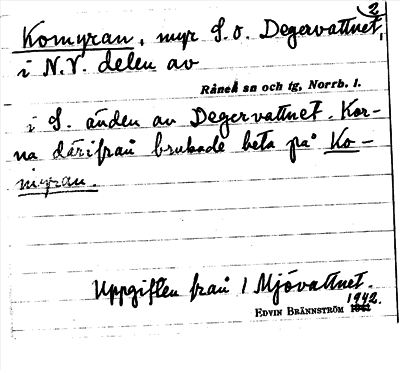 2
Komyran, myr S. o. Degervattnet,
i N.V. delen av
Råneå sn och tg, Norrb. l.
i S. änden av Degervattnet. Kor-
na därifrån brukade beta på Ko-
myran.
Uppgiften från 1 Mjövattnet.
1942.
EDVIN BRÄNNSTRÖM 1941